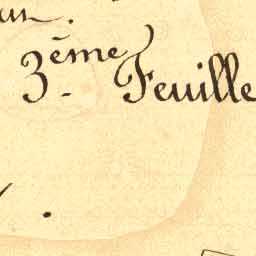 3ème Feuille